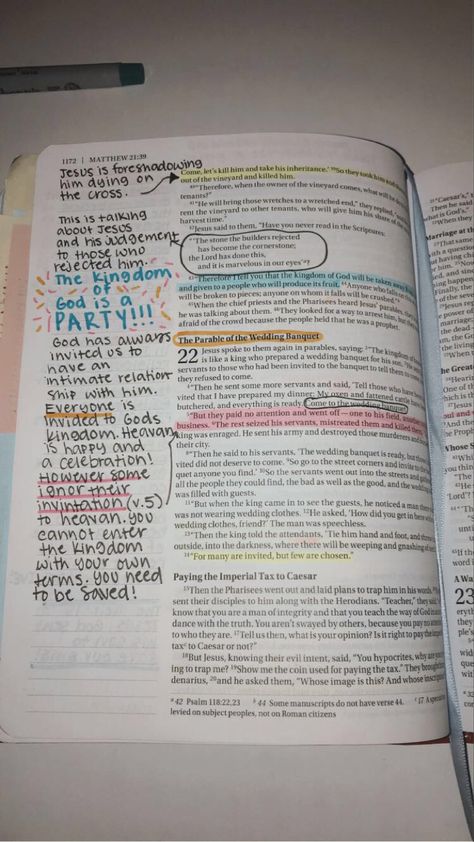 1172 | MATTHEW 21:39
Jesus is foreshadowing
him dying on
the cross.
This is talking
about Jesus
and his judgement
to those who
rejected him.
The kingdom
of
God is a
PARTY!!!
God has always
invited us to
have an
intimate relation
ship with him.
Everyone is
invited to Gods
kingdom. Heavan
is happy and
a celebration!
However some
ignor their
invintation (v.5)
to heavan. you
cannot enter
the kingdom
with your own
terms. you need
to be saved!
Come, let's kill him and take his inheritance.' 39So they took him and
out of the vineyard and killed him.
40"Therefore, when the owner of the vineyard comes, what will he
tenants?"
41"He will bring those wretches to a wretched end," they replied, "and
rent the vineyard to other tenants, who will give him his share of the
harvest time."
42Jesus said to them, "Have you never read in the Scriptures:
"'The stone the builders rejected
has become the cornerstone;
the Lord has done this,
and it is marvelous in our eyes'a?
43"Therefore I tell you that the kingdom of God will be taken away
and given to a people who will produce its fruit. 44Anyone who falls on
will be broken to pieces; anyone on whom it falls will be crushed."b
45When the chief priests and the Pharisees heard Jesus' parables,
he was talking about them. 46They looked for a way to arrest him, but
afraid of the crowd because the people held that he was a prophet.
The Parable of the Wedding Banquet
22 Jesus spoke to them again in parables, saying: 2"The kingdom of
is like a king who prepared a wedding banquet for his son. 3He
servants to those who had been invited to the banquet to tell them
they refused to come.
4"Then he sent some more servants and said, 'Tell those who have
vited that I have prepared my dinner: My oxen and fattened cattle
butchered, and everything is ready. Come to the wedding banquet.'
5"But they paid no attention and went off — one to his field,
business. 6The rest seized his servants, mistreated them and killed
king was enraged. He sent his army and destroyed those murderers and
their city.
8"Then he said to his servants, 'The wedding banquet is ready, but
vited did not deserve to come. 9So go to the street corners and invite to the
quet anyone you find.' 10So the servants went out into the streets and
all the people they could find, the bad as well as the good, and the wedding
was filled with guests.
11"But when the king came in to see the guests, he noticed a man
was not wearing wedding clothes. 12He asked, 'How did you get in here
wedding clothes, friend?' The man was speechless.
13"Then the king told the attendants, 'Tie him hand and foot, and
outside, into the darkness, where there will be weeping and gnashing of
14"For many are invited, but few are chosen."
Paying the Imperial Tax to Caesar
15Then the Pharisees went out and laid plans to trap him in his words.
sent their disciples to him along with the Herodians. "Teacher," they said,
know that you are a man of integrity and that you teach the way of God in
dance with the truth. You aren't swayed by others, because you pay no
to who they are. 17Tell us then, what is your opinion? Is it right to pay the
taxc to Caesar or not?"
18But Jesus, knowing their evil intent, said, "You hypocrites, why are
ing to trap me? 19Show me the coin used for paying the tax." They brought
denarius, 20and he asked them, "Whose image is this? And whose
a 42 Psalm 118:22,23 b 44 Some manuscripts do not have verse 44. c 17 A special
levied on subject peoples, not on Roman citizens
23